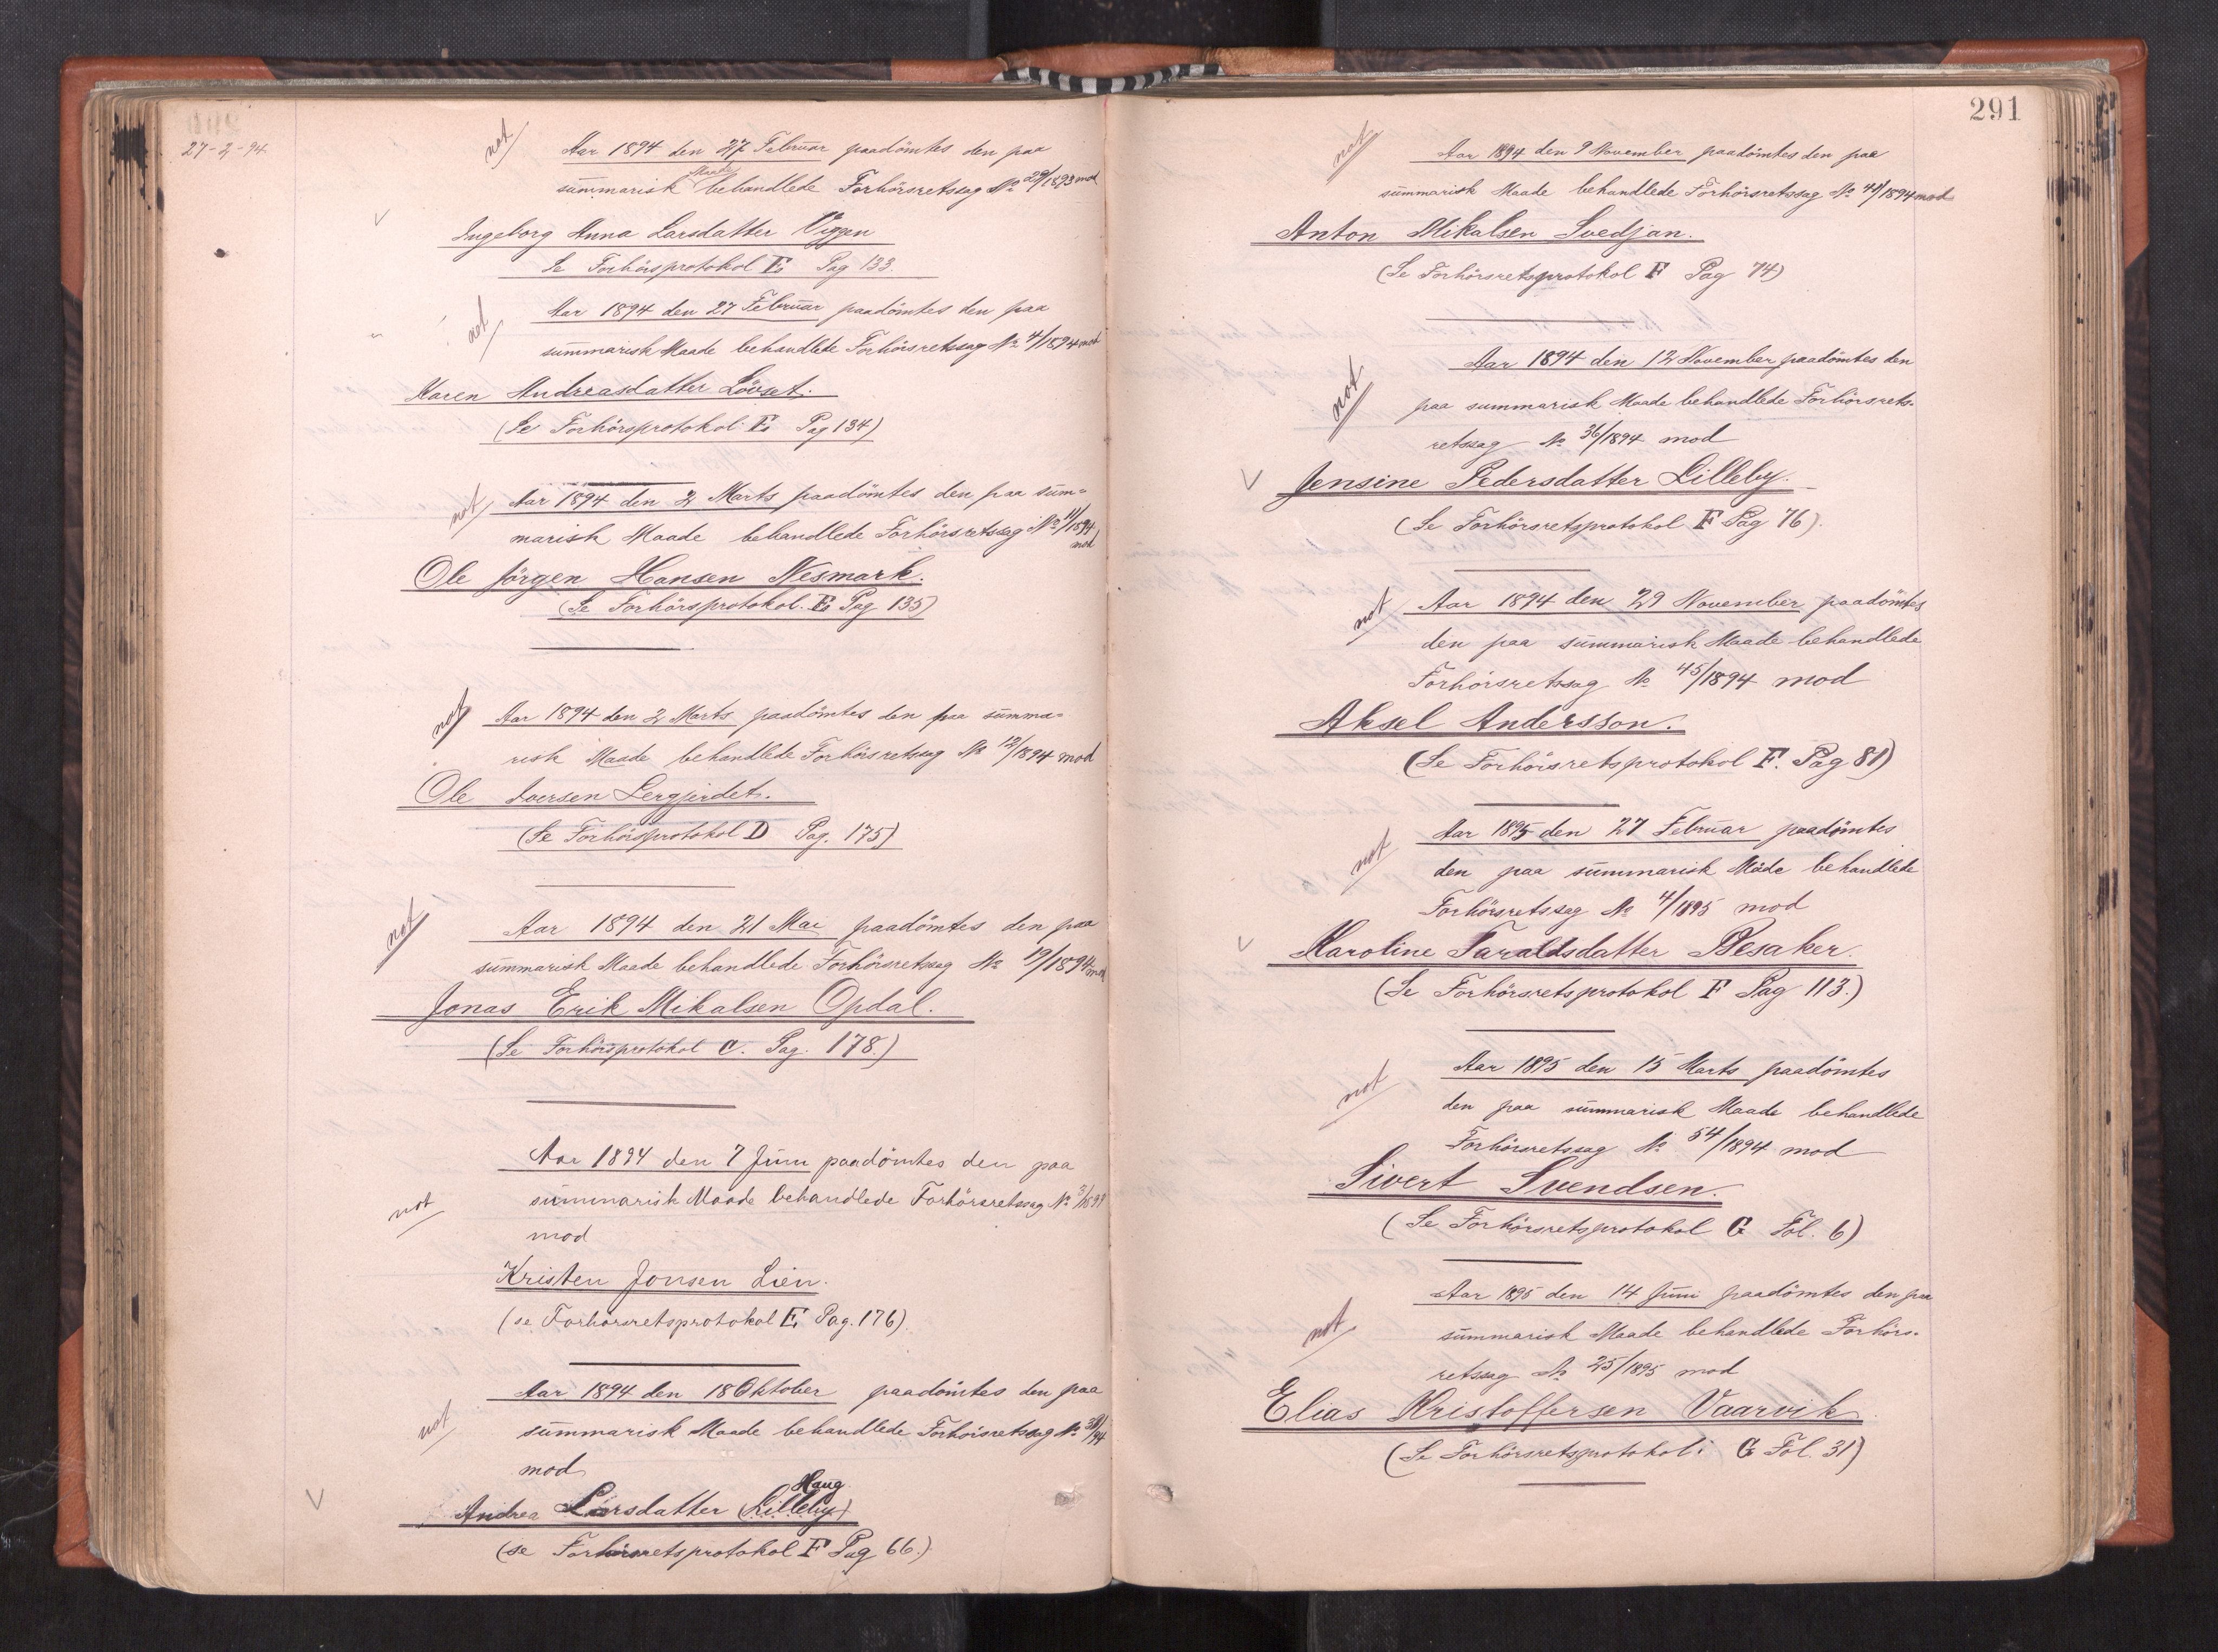 27-2-94
not
Aar 1894 den 27 Februar paadömtes den paa
Maade
summarisk behandlede Forhörsretssag No 29/1893 mod
Ingeborg Anna Larsdatter Viggen
Se Forhörsprotokol E Pag 133.
not
Aar 1894 den 27 Februar paadömtes den paa
summarisk Maade behandlede Forhörsretssag No 4/1894 mod
Karen Andreasdatter Lövset.
(Se Forhörsprotokol E Pag 134)
not
Aar 1894 den 2 Marts paadömtes den paa sum=
marisk Maade behandlede Forhörsretssag No 11/1894
mod
Ole Jörgen Hansen Nesmark.
(Se Forhörsprotokol. E Pag 135)
not
Aar 1894 den 2 Marts paadömtes den paa summa=
risk Maade behandlede Forhörsretssag No 12/1894 mod
Ole Iversen Lergjerdet.
(Se Forhörsprotokol D Pag. 175)
not
Aar 1894 den 21 Mai paadömtes den paa
summarisk Maade behandlede Forhörsretssag No 19/1894 mod
Jonas Erik Mikalsen Opdal.
(Se Forhörsprotokol C. Pag. 178.)
Aar 1894 den 7 Juni paadömtes den paa
not
summarisk Maade behandlede Forhörsretssag No
mod
Kristen Jonsen Lien.
(se Forhörsretsprotokol E Pag. 176)
Aar 1894 den 18 Oktober paadömtes den paa
not
summarisk Maade behandlede Forhörsretssag No 38/94
mod
Haug
Andrea Larsdatter (Lilleby)
(se Forhörsretsprotokol F Pag 66.)
291
not
Aar 1894 den 9 November paadömtes den paa
summarisk Maade behandlede Forhörsretssag No 41/1894 mod
Anton Mikalsen Svedjan.
(Se Forhörsretsprotokol F Pag 74)
not
Aar 1894 den 12 November paadömtes den
paa summarisk Maade behandlede Forhörsrets-
retssag No 36/1894 mod
Jensine Pedersdatter Lilleby.
(Se Forhörsretsprotokol F Pag 76).
not
Aar 1894 den 29 November paadömtes
den paa summarisk Maade behandlede
Forhörsretssag No 45/1894 mod
Aksel Andersson.
(Se Forhörsretsprotokol F. Pag 81)
not
Aar 1895 den 27 Februar paadömtes
den paa summarisk Måde behandlede
Forhörsretssag No 4/1895 mod
Karoline Taraldsdatter Besaker.
(Se Forhörsretsprotokol F Pag 113.)
not
Aar 1895 den 15 Marts paadömtes
den paa summarisk Maade behandlede
Forhörsretssag No 54/1894 mod
Sivert Svendsen.
(Se Forhörsretsprotokol G Fol. 6)
not
Aar 1895 den 14 Juni paadömtes den paa
summarisk Maade behandlede Forhörs-
retssag No 25/1895 mod
Elias Kristoffersen Vaarvik
(Se Forhörsretsprotokol: G Fol. 31)